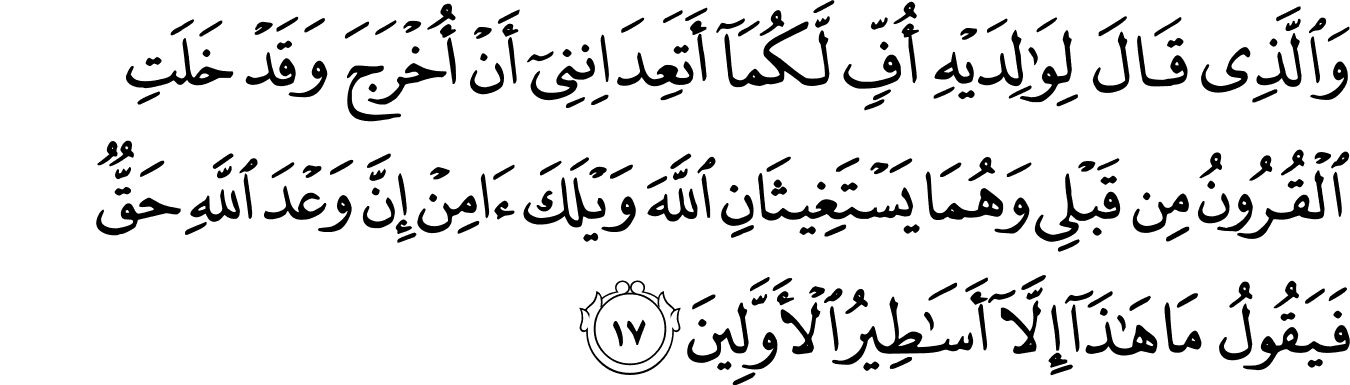 وَٱلَّذِى قَالَ لِوَٰلِدَيْهِ أُفٍّ لَّكُمَآ أَتَعِدَانِنِىٓ أَنْ أُخْرَجَ وَقَدْ خَلَتِ
ٱلْقُرُونُ مِن قَبْلِى وَهُمَا يَسْتَغِيثَانِ ٱللَّهَ وَيْلَكَ ءَامِنْ إِنَّ وَعْدَ ٱللَّهِ حَقٌّ
فَيَقُولُ مَا هَـٰذَآ إِلَّآ أَسَـٰطِيرُ ٱلْأَوَّلِينَ ١٧